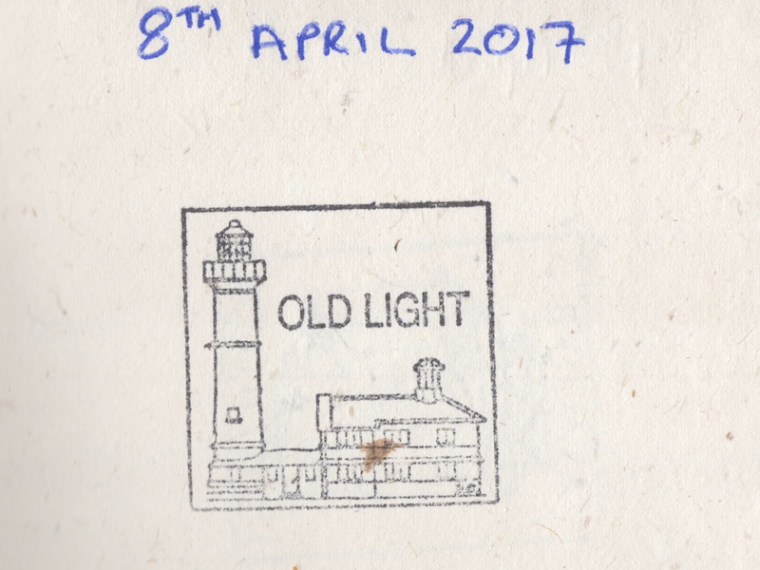 8TH APRIL 2017
OLD LIGHT